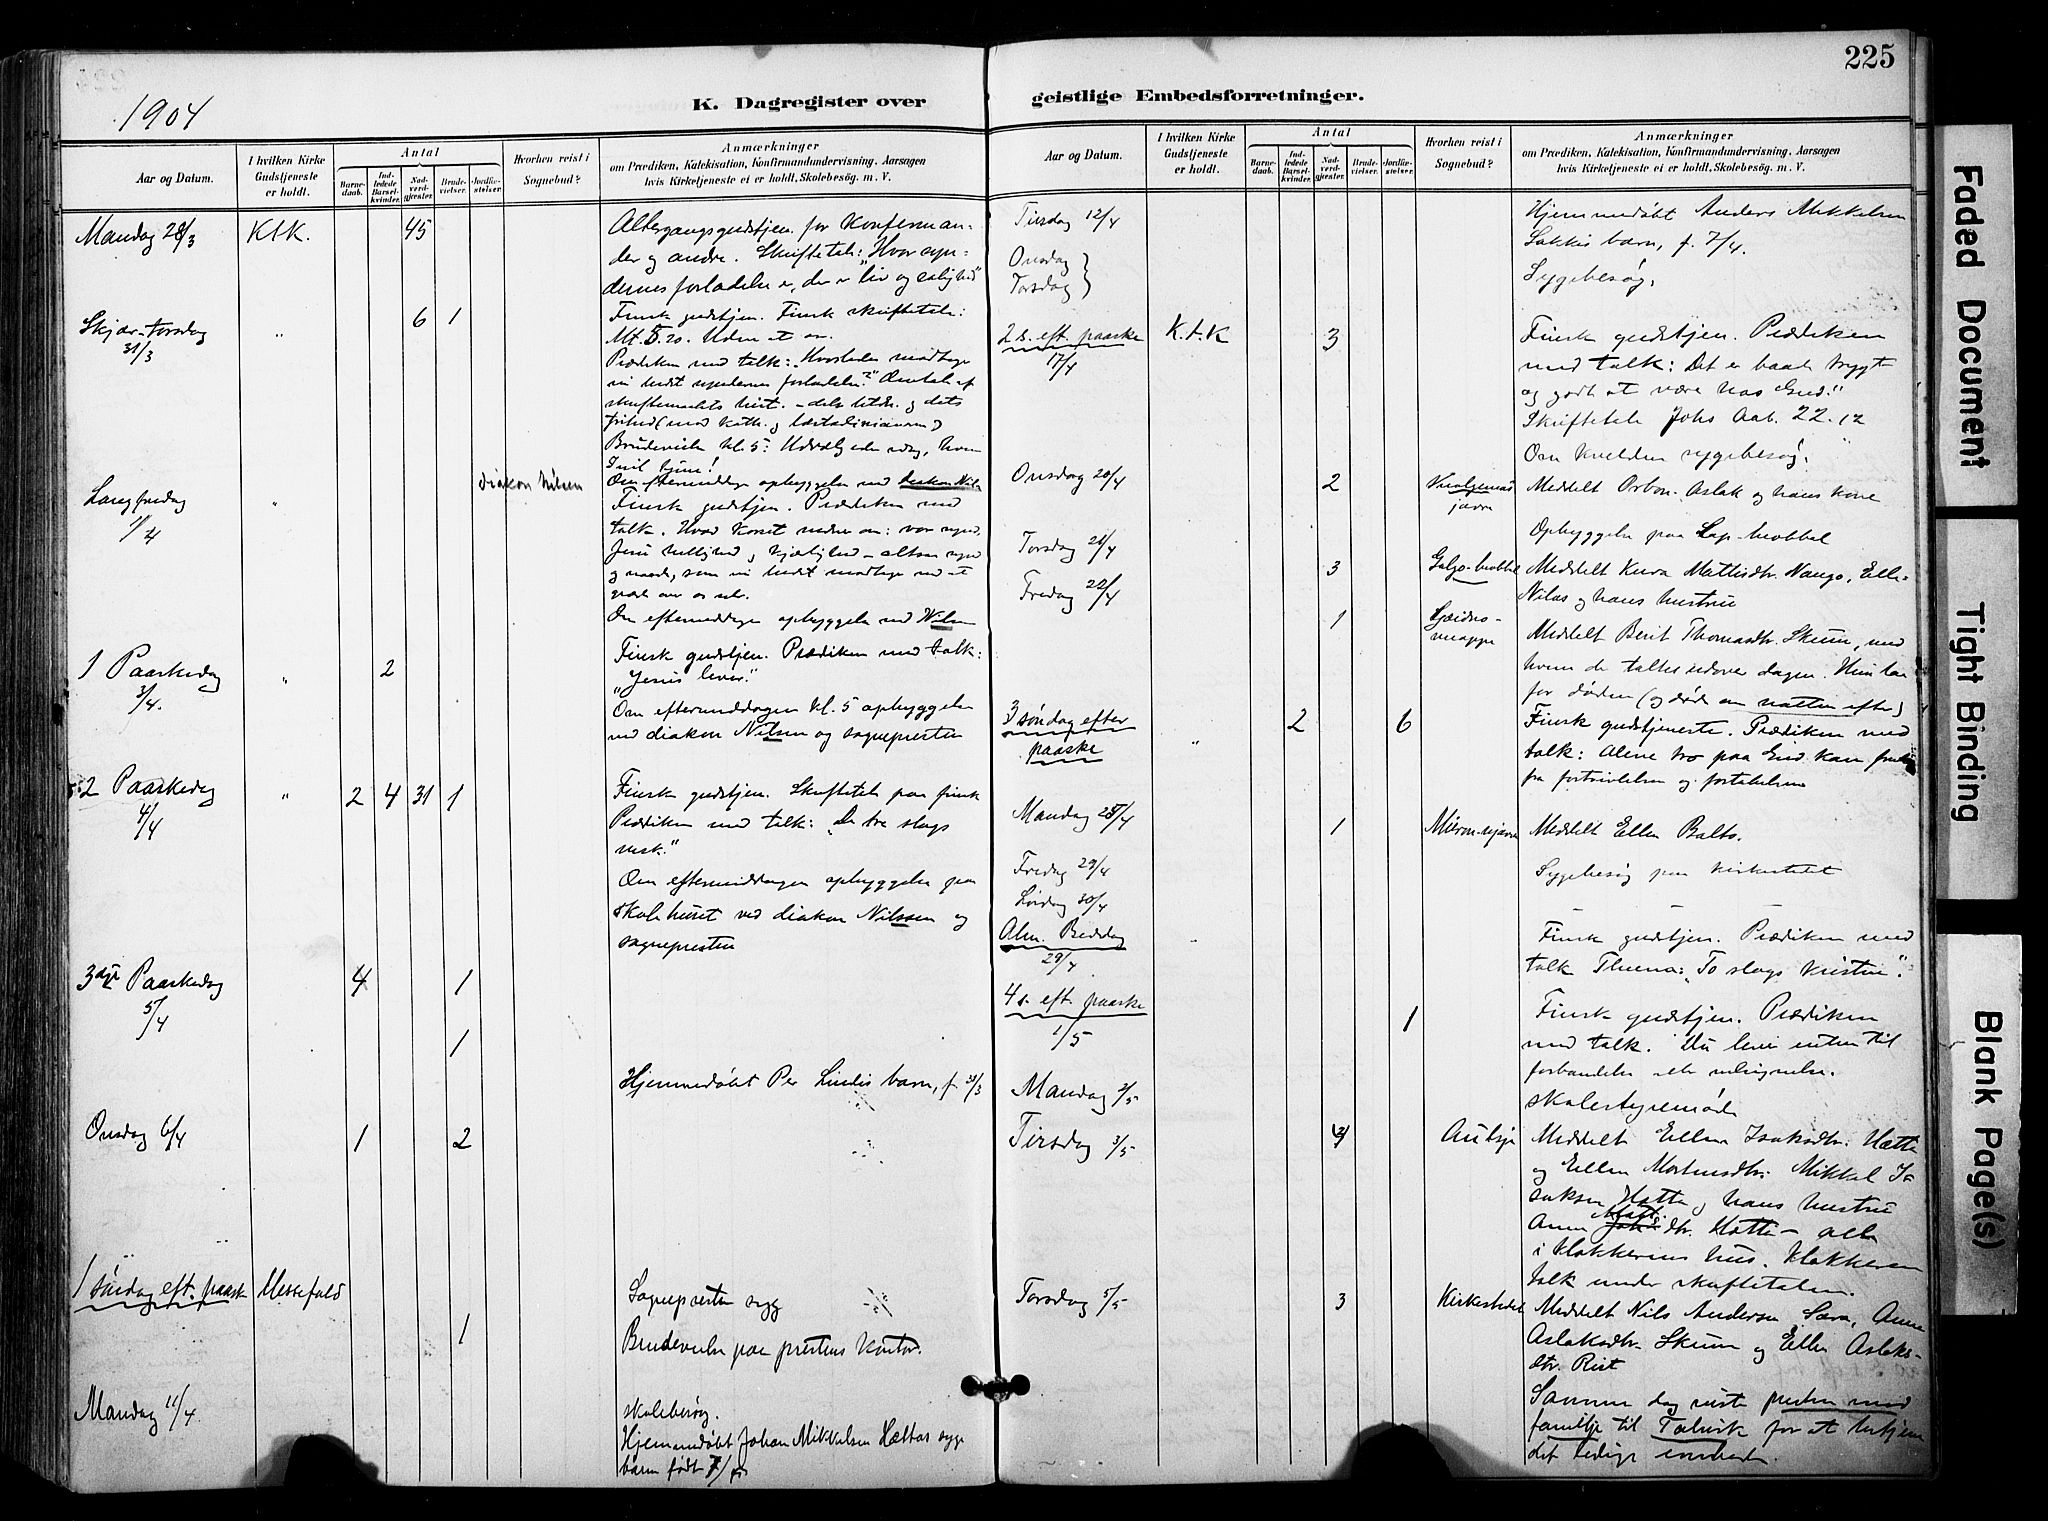 225
1904
K. Dagregister over
geistlige Embedsforretninger.
Aar og Datum.
I hvilken Kirke
Gudstjeneste
er holdt.
Antal
Barne-
daab.
Ind-
ledede
Barsel-
kvinder.
Nad-
verd-
gjester.
Brude-
vielser.
Jordfæ-
stelser.
Hvorhen reist i
Sognebud?
Anmærkninger
om Prædiken, Katekisation, Konfirmandundervisning, Aarsagen
hvis Kirketjeneste ei er holdt, Skolebesøg. m. V.
Mandag 28/3
K/K.
45
Altergangsgudstjen. for Konferman-
der og andre. Skriftetale: "Hvor syn-
dernes forladelse er, der er liv og salighed"
Skjær-torsdag
31/3
"
6
1
Finsk gudstjen. Finsk skriftetale:
Mt. 5.20. Uden at
Prædiken med talk: "Hvorledes modtage
vi syndernes forladelse?"
Brudevielse kl. 5:
Langfredag
1/4
"
diakon Nilsen
Om eftermiddag opbyggelse ved diakon
Finsk gudstjen. Prædiken med
talk. Hvad korset om: vor synd,
Jesu hellighed og kjærlighed - altsaa synd
og naade, som vi modtage ved at
Om eftermiddagen opbyggelse ved Nilsen
1 Paaskedag
3/4.
"
2
Finsk gudstjen. Prædiken med talk:
"Jesus lever."
Om eftermiddagen kl. 5 opbyggelse
ved diakon Nilsen og sognepresten
2 Paaskedag
4/4
"
2 4 31 1
Finsk gudstjen. Skriftetale paa finsk
Prædiken med talk: "De tre slags
Om eftermiddagen opbyggelse paa
skolehuset ved diakon Nilssen og
sognepresten
3dje Paaskedag
5/4
4
1
1
Hjemmedøbt Per Lindis barn, f.
Onsdag 6/4
1
2
1 søndag eft. paaske
Messefald
Sognepresten syg
1
Brudevielse paa prestens kontor.
Mandag 11/4
Skolebesøg.
Hjemmedøbt Johan Mikkelsen Hættas syge
barn født
Aar og Datum.
I hvilken Kirke
Gudstjeneste
er holdt.
Antal
Barne-
daab.
Ind-
ledede
Barsel-
kvinder.
Nad-
verd-
gjester.
Brude-
vielser.
Jordfæ-
stelser.
Hvorhen reist i
Sognebud?
Anmærkninger
om Prædiken, Katekisation, Konfirmandundervisning, Aarsagen
hvis Kirketjeneste ei er holdt, Skolebesøg. m. V.
Tirsdag 12/4
Hjemmedøbt Anders Mikkelsen
Sakkis barn, f. 7/4.
Onsdag
Torsdag
Sygebesøg.
2 s. eft. paaske
17/4
K.t.K
3
Finsk gudstjen. Prædiken
med talk: "Det er baade trygt
og godt at være hos Gud."
Skriftetale Johs Aab. 22.12
Om kvelden sygebesøg.
Onsdag 20/4
2
Meddelt Aslak og hans kone
Torsdag 21/4
Opbyggelse paa
Fredag 22/4
3
Meddelt Mattisdtr. Nango, Elle
Nilas og hans hustru
1
Meddelt Berit Thomasdtr. Skum, med
hvem der taltes udover dagen. Hun laa
for døden (og døde om natten efter)
3 søndag efter
paaske
"
2
6
Finsk gudstjeneste. Prædiken med
talk: Alene tro paa Gud kan
fra fortvivlelsen og fortabelsen
Mandag 25/4
1
Meddelt Ellen Balto.
Fredag 29/4
Lørdag 30/4
Sygebesøg paa kirkestedet
Alm. Bededag
29/4
"
Finsk gudstjen. Prædiken med
talk Thema: "To slags kristne".
4 s. eft. paaske
1/5
1
Finsk gudstjen. Prædiken
med talk. Du lever enten til
forbandelse eller velsignelse.
Mandag 2/5
Skolestyremøde
Tirsdag 3/5
Meddelt Ellen Isaksdtr. Hætta
og Ellen Mortensdtr. Mikkel I-
saksen Hætta og hans hustru
Anna dtr. Hætta - alle
i klokkerens hus. Klokkeren
talk under skriftetalen.
Torsdag 5/5
3
Kirkestedet
Meddelt Nils Andersen Sara, Anne
Aslaksdtr. Skum og Ellen Aslaks-
dtr. Rist
Samme dag reiste presten med
familje til Talvik for at betjene
det ledige embede.
Faded Document
Tight Binding
Blank Page(s)